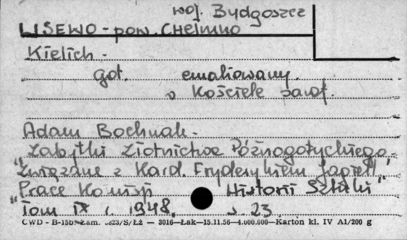 woj. Bydgoszcz
LISEWO - pow. Chełmno
Kielich -
got. emaliowany.
w Kościele paraf.
Adam Bochnak -
"Zabytki Złotnictwa Późnogotyckiego
Związane z Kard. Fryderykiem Jagiell."
"Prace Komisji Historii Sztuki"
Tom IX r. 1948. s. 23
CWD - B-15b Zam. S/Łż — 3016—Łak—15.11.56—4.000.000—Karton kl. IV A1/200 g